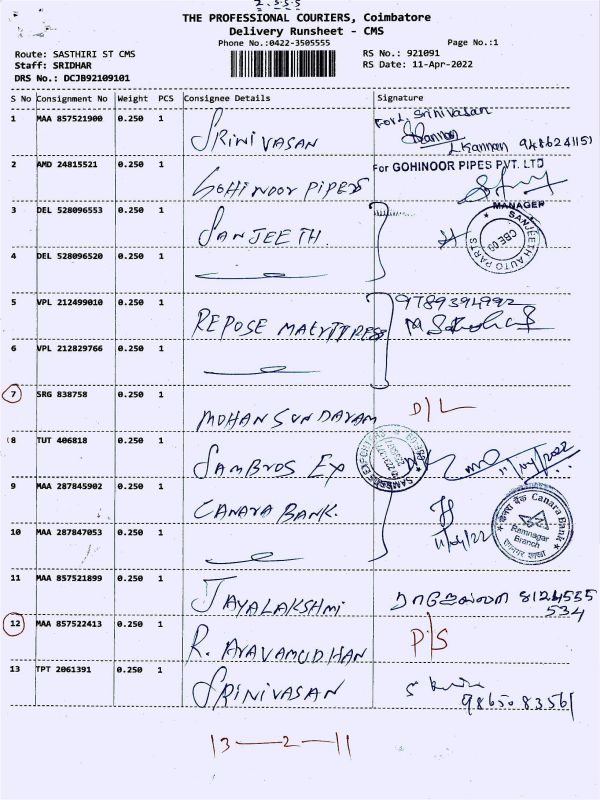 2.5.5.5
THE PROFESSIONAL COURIERS, Coimbatore
Delivery Runsheet - CMS
Phone No.:0422-3505555
Page No.:1
Route: SASTHIRI ST CMS
RS No.: 921091
Staff: SRIDHAR
RS Date: 11-Apr-2022
DRS No.: DCJB92109101
S No Consignment No Weight PCS Consignee Details Signature
1 MAA 857521900 0.250 1 SRINIVASAN For L Srinivasan
L Kannan 9486241151
2 AMD 24815521 0.250 1 GOHINOOR PIPES For GOHINOOR PIPES PVT. LTD
MANAGER
3 DEL 528096553 0.250 1 SANJEETH. SANJEETH AUTO PARTS CBE 09
4 DEL 528096520 0.250 1
5 VPL 212499010 0.250 1 REPOSE MATTTRESS
6 VPL 212829766 0.250 1
7 SRG 838758 0.250 1 MOHAN SUNDARAM D/L
8 TUT 406818 0.250 1 SAMBROS EX 11/04/2022
9 MAA 287845902 0.250 1 CANARA BANK. केनरा बैंक Canara Bank
Ramnagar
Branch
10 MAA 287847053 0.250 1 11/04/22
11 MAA 857521899 0.250 1 JAYALAKSHMI 8124555
534
12 MAA 857522413 0.250 1 R. ARAVAMUDHAN P/S
13 TPT 2061391 0.250 1 SRINIVASAN
9865083561
13—2—11